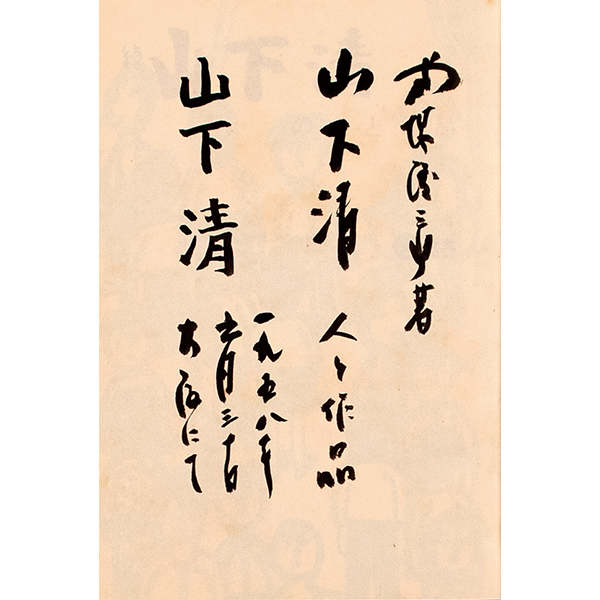 式場隆三郎著
山下清 人と作品
山下清
一九五八年
六月三十日
大阪にて